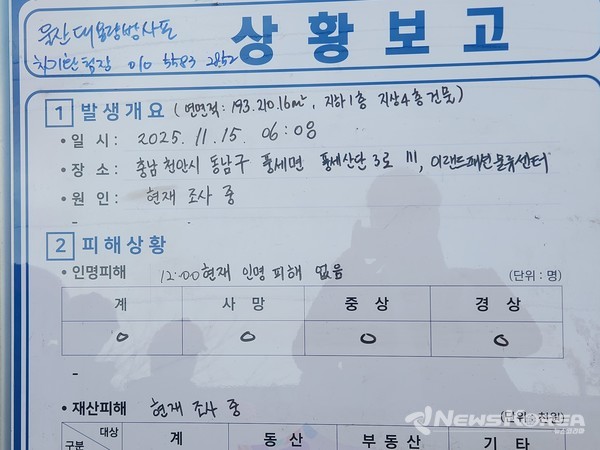 울산 대용량방사포
010 5583 2852
상황보고
1 발생개요 (연면적: 193.210.16㎡, 지하1층 지상4층 건물)
• 일 시 : 2025. 11. 15. 06:08
• 장 소 : 충남 천안시 동남구 풍세면 풍세산단3로 111, 이랜드패션물류센터
• 원 인 : 현재 조사 중
-
2 피해상황
• 인명피해 12:00현재 인명피해 없음 (단위 : 명)
계 사 망 중 상 경 상
0 0 0 0
-
• 재산피해 현재 조사 중 (단위 : 천원)
대상
구분 계 동 산 부 동 산 기 타
NEWSKOREA